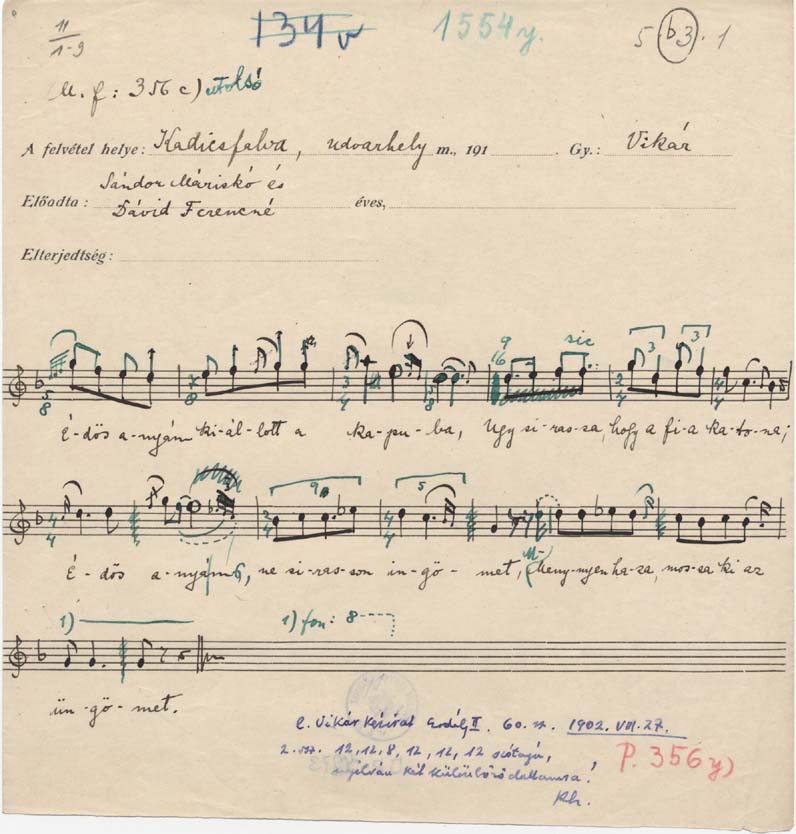 11
1-9
134 v
1554 y.
5 b3. 1
M. f: 356 c) utolsó
A felvétel helye: Kadicsfalva, Udvarhely m., 191 Gy.: Vikár
Előadta: Sándor Máriskó és
Dávid Ferencné éves,
Elterjedtség:
9
16
sic
3 3
5
8
7
8
3
4
5
8
2
4
4
4
É-dös a-nyám ki-ál-lott a ka-pu-ba, Ugy si-ras-sa, hogy a fi-a ka-to-na;
9
5
4
4
3
4
4
4
É-dös a-nyám, ne si-ras-son in-gö-met, Meny-nyen ha-za, mos-sa ki az
1) 1) fon: 8
ün-gö-met.
l. Vikár Kézirat Erdély II. 60. sz. 1902. VIII. 27.
2. vsz. 12, 12, 8, 12, 12, 12 szótagú,
nyilván két különböző dallamra!
P. 356 y)